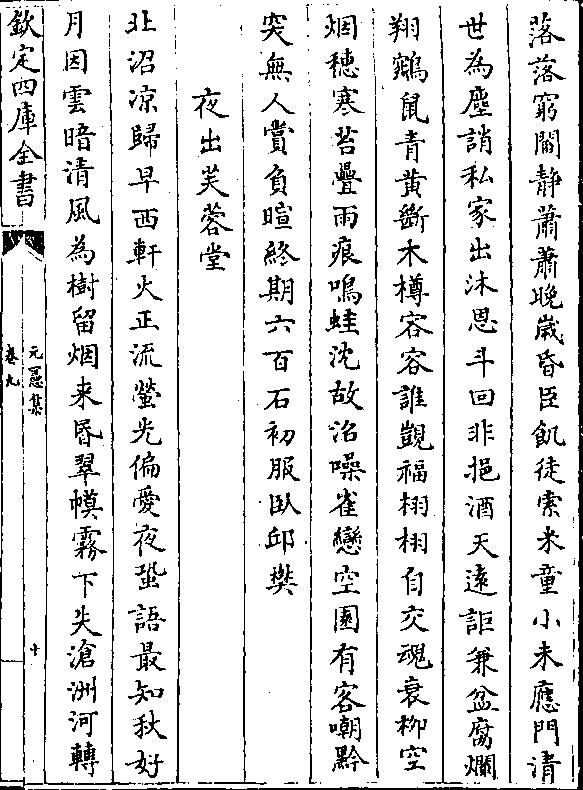 落落窮閻静蕭蕭晚歲昏臣飢徒索米童小未應門清
世為塵誚私家出沐恩斗回非挹酒天遠詎兼盆腐爛
翔鷃鼠青黃斷木樽容容誰覬福栩栩自交魂衰栁空
烟穗寒苔疊雨痕鳴蛙沈故沼噪雀戀空園有客嘲黔
突無人賞負暄終期六百石初服臥邱樊
夜出芙蓉堂
北沼凉歸早西軒火正流螢光偏愛夜蛩語最知秋好
月因雲暗清風為樹留烟来昬翠幙霧下失滄洲河轉
欽定四庫全書
元憲集
卷九
十